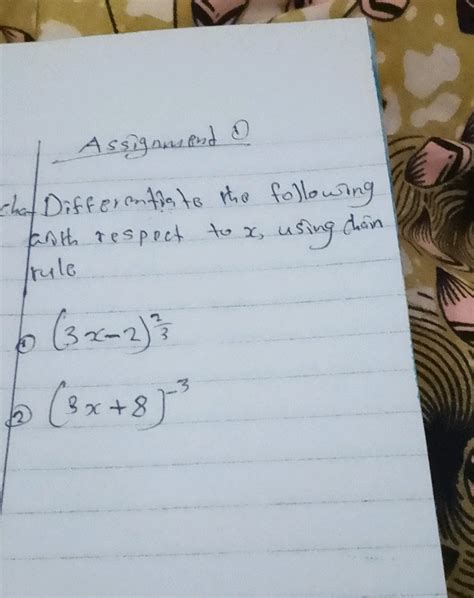 Assignment ①
Differentiate the following
with respect to x, using chain
rule
① (3x-2)^2/3
② (3x+8)^-3